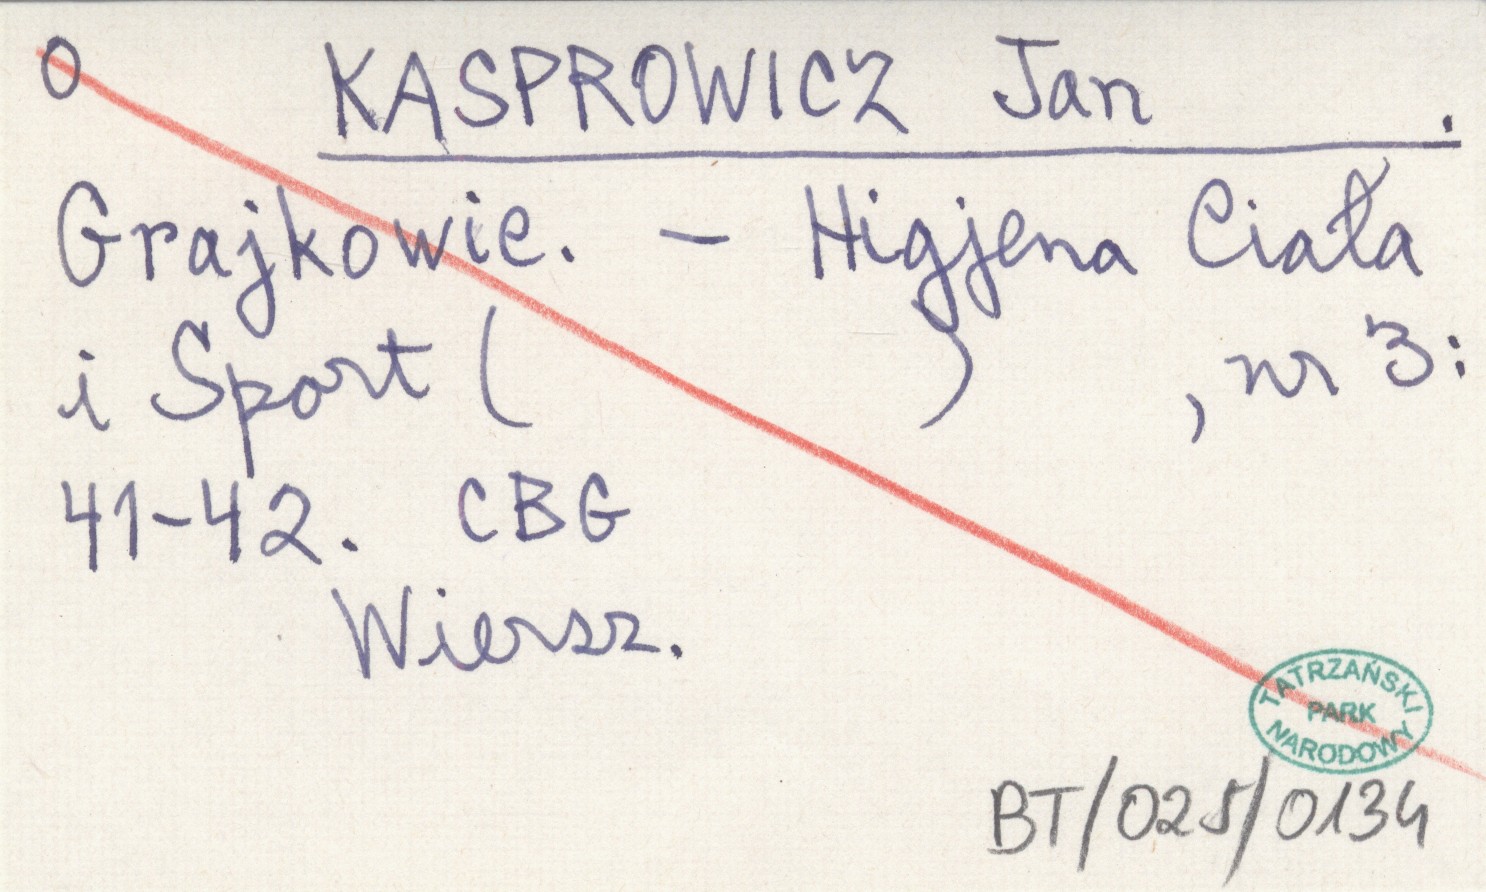 O KASPROWICZ Jan .
Grajkowie. – Higjena Ciała
i Sport ( ) , nr 3:
41-42. CBG
Wiersz.
TATRZAŃSKI
PARK
NARODOWY
BT/025/0134